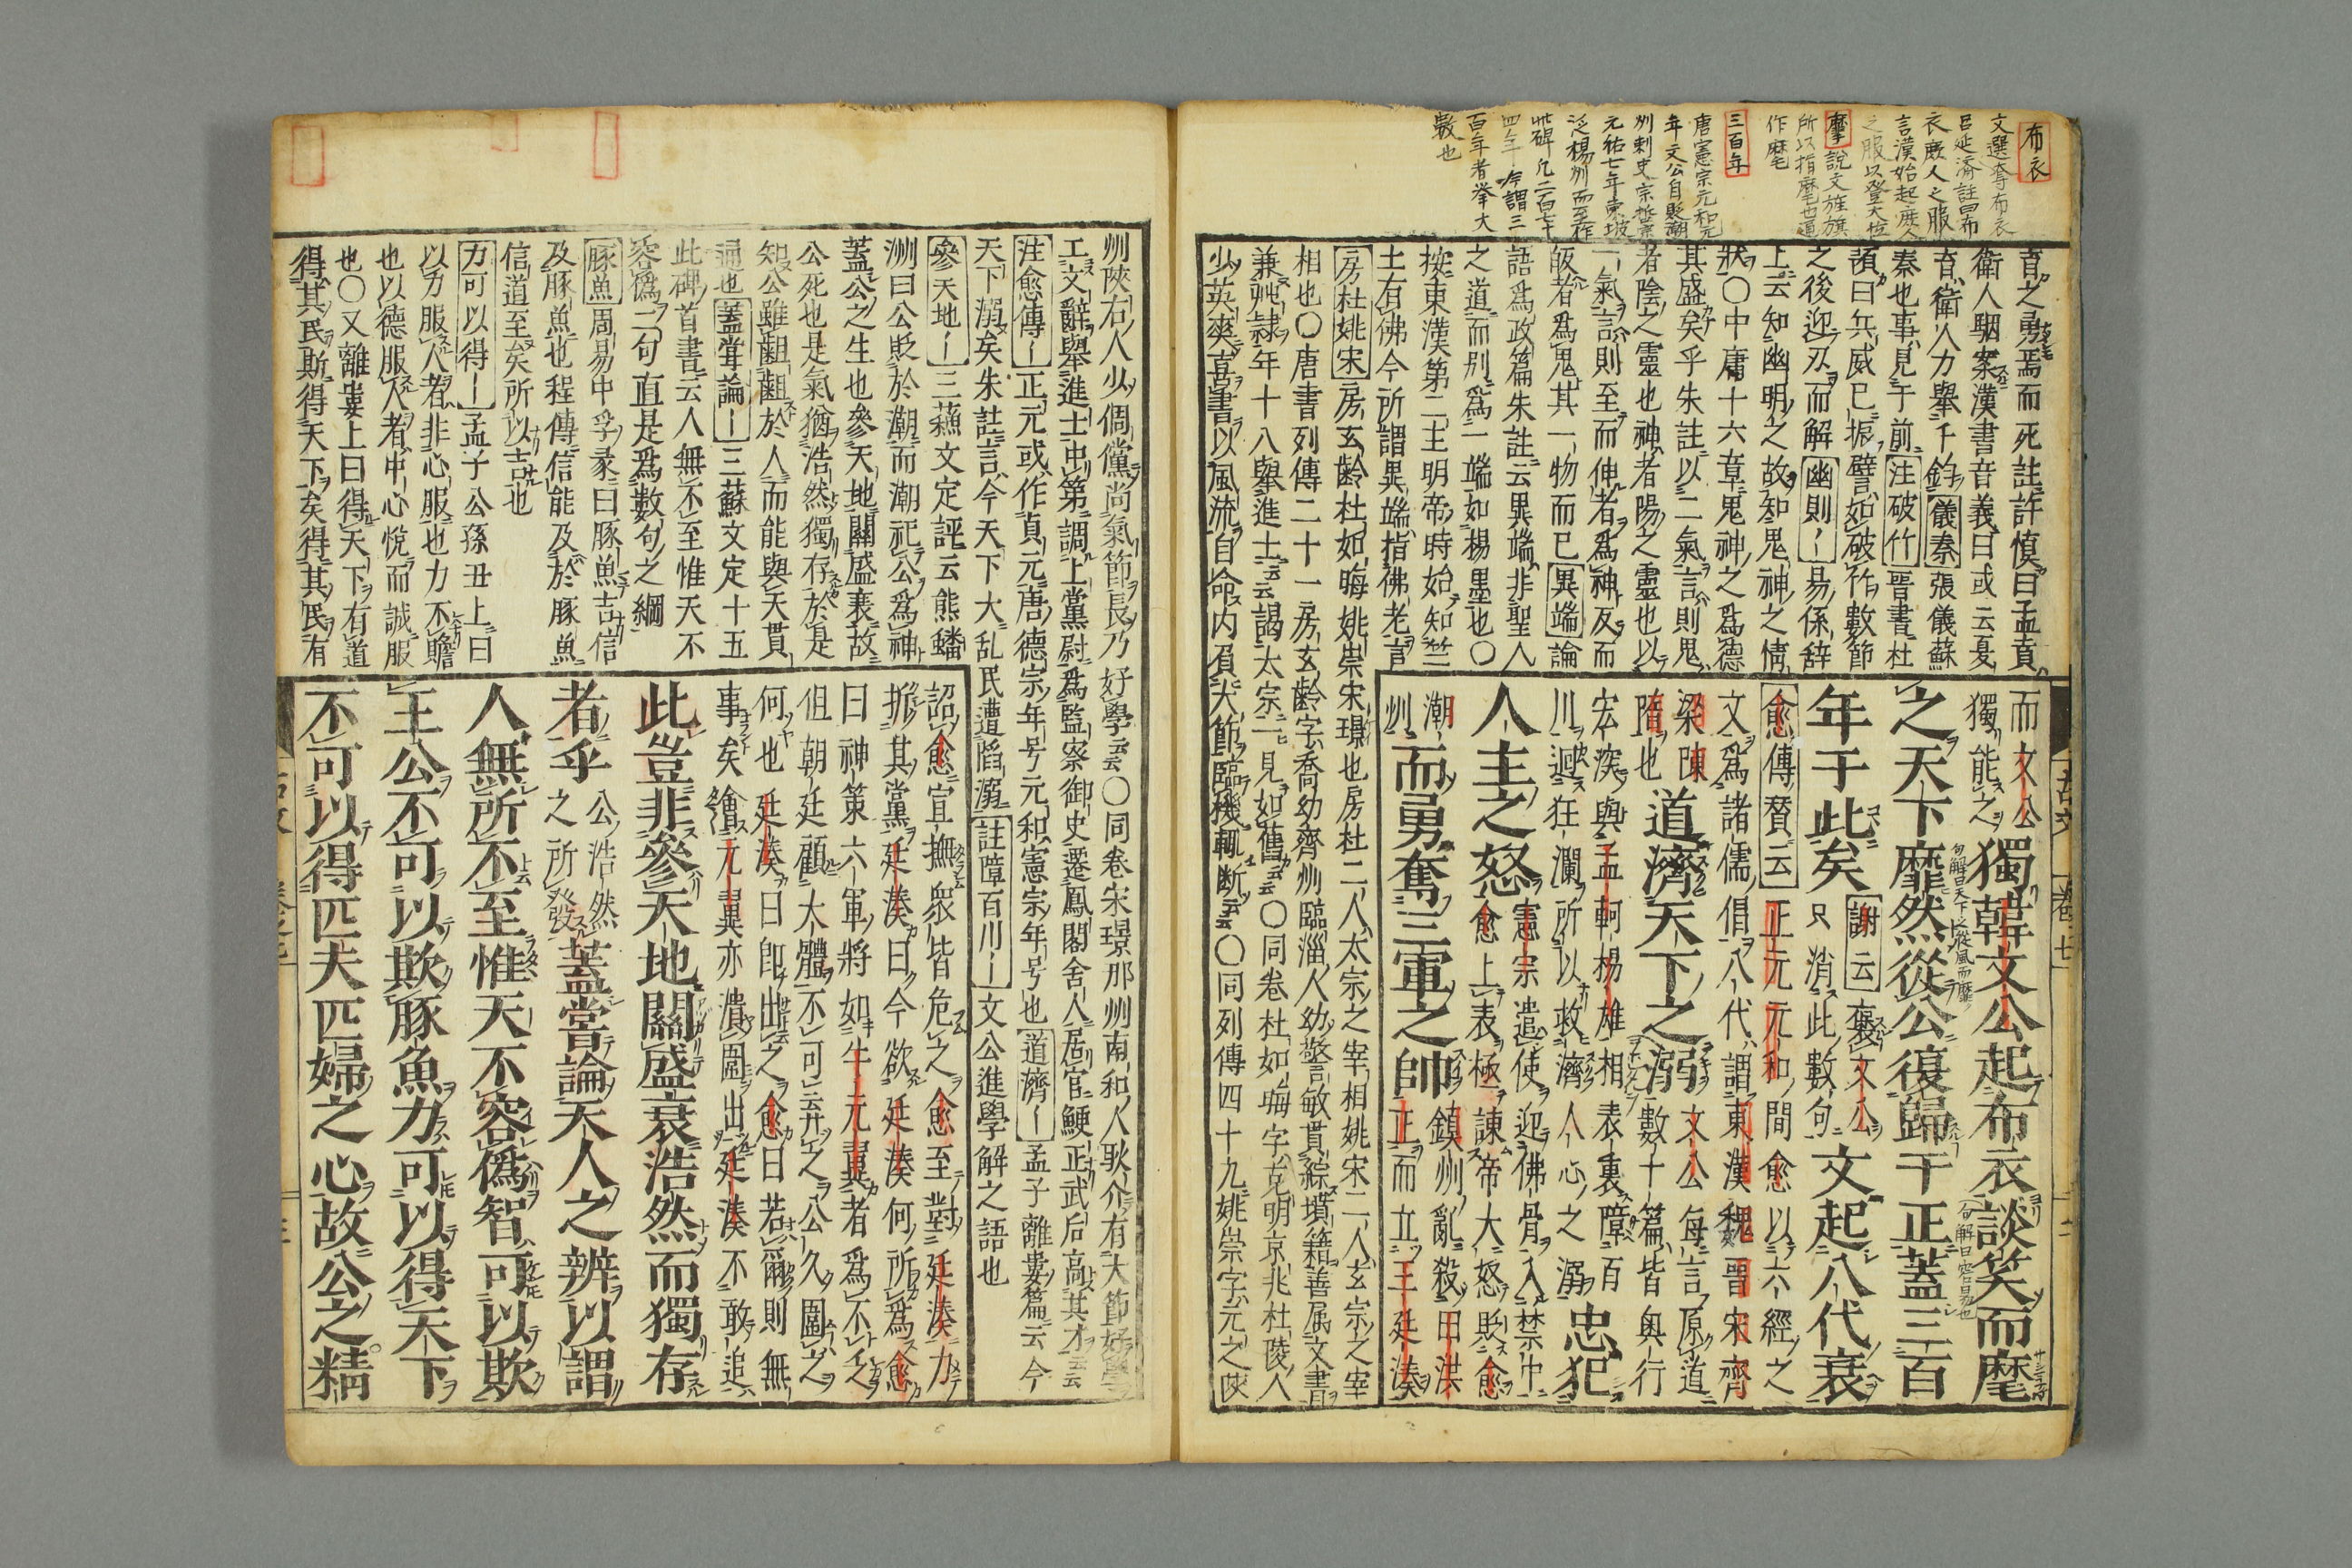 布衣
文選奪布衣
呂延濟註曰布
衣庶人之服
言漢始起庶人
之服以登天位
麾 說文旌旗
所以指麾也通
作麾
三百年
唐憲宗元和元
年文公自貶潮
州刺史宗哲宗
元祐七年東坡
泛楊州而至作
此碑凡二百七十
四年今謂三
百年者挙大
數也
育之勇焉而死註許慎曰孟賁
衛人駰案漢書音義曰或云夏
育衛人力舉千鈞儀秦張儀蘇
秦也事見于前注破竹晋書杜
預曰兵威已振譬如破竹數節
之後迎刃而解幽則〡易係辞
上云知幽明之故知鬼神之情
狀〇中庸十六章鬼神之爲德
其盛矣乎朱註以二氣言則鬼
者陰之靈也神者陽之靈也以
一氣言則至而伸者爲神反而
皈者爲鬼其一物而已異端論
語爲政篇朱註云異端非聖人
之道而别爲一端如楊墨也〇
按東漢第二主明帝時始知竺
土有佛今所謂異端指佛老言
房杜姚宋房玄齡杜如晦姚崇宋璟也房杜二人太宗之宰相姚宋二人玄宗之宰
相也〇唐書列傳二十一房玄齡字喬幼齊州臨淄人幼警敏貫綜墳籍善属文書
兼艸隷年十八舉進士云云謁太宗一見如舊云云〇同卷杜如晦字克明京兆杜陵人
少英爽喜書以風流自命内負大節臨機輒断云云〇同列傳四十九姚崇字元之陜
而文公
獨能之獨韓文公起布衣談笑而麾
之天下靡然從公復歸于正蓋三百
句解曰天下皆從風而靡
句解曰容易也
年于此矣謝云褒文公只消此數句文起八代衰
愈傳賛云正元元和間愈以六經之
文爲諸儒倡八代謂東漢魏晋宋齊
梁陳
隋也道濟天下之溺文公毎言原道數十篇皆奥衍
宏深與孟軻楊雄相表裏障百
川迴狂瀾所以救濟人心之溺忠犯
人主之怒憲宗遣使迎佛骨入禁中愈上表極諫帝大怒貶愈
潮
州而勇奪三軍之帥鎮州亂殺田洪正而立王廷湊
州陜右人少倜儻尚氣節長乃好學云云〇同卷宋璟那州南和人耿介有大節好學
工文辭舉進士中第調上黨尉爲監察御史遷鳳閣舍人居官鯁正武后高其才云云
注愈傳〡正元或作貞元唐德宗年号元和憲宗年号也道濟〡孟子離婁篇云今
天下溺矣朱註言今天下大乱民遭䧟溺註障百川〡文公進學解之語也
參天地〡三蘓文定評云熊蟠
洲曰公貶於潮而潮祀公爲神
蓋公之生也參天地關盛衰故
公死也是氣猶浩然獨存於是
知公雖齟齬於人而能與天貫
通也蓋甞論〡三蘇文定十五
此碑首書云人無不至惟天不
容僞二句直是爲數句之綱
豚魚周易中孚彖曰豚魚吉信
及豚魚也程傳信能及於豚魚
信道至矣所以吉也
力可以得〡孟子公孫丑上曰
以力服人者非心服也力不贍
也以德服人者中心悅而誠服
也〇又離婁上曰得天下有道
得其民斯得天下矣得其民有
詔愈宣撫衆皆危之愈至對廷湊力
折其黨廷湊曰今欲廷湊何所爲愈
曰神策六軍將如牛元翼者爲不乏
但朝廷顧大體不可云弃之公久圍之
何也廷湊曰即出之愈曰若爾則無
事矣繪元翼亦潰圍出廷湊不敢追
此豈非參天地關盛衰浩然而獨存
者乎公浩然之所發蓋甞論天人之辨以謂
人無所不至惟天不容僞智可以欺
王公不可以欺豚魚力可以得天下
不可以得匹夫匹婦之心故公之精